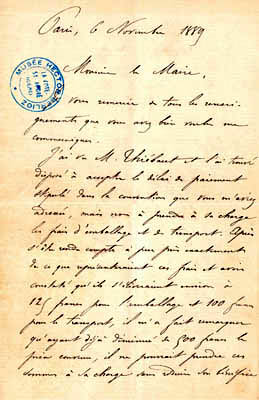 Paris, 6 Novembre 1889
MUSÉE HECTOR BERLIOZ
Monsieur le Maire,
vous remercie de tous les rensei-
gnements que vous avez bien voulu me
communiquer.
J'ai vu M. Thiébaut et l'ai trouvé
disposé à accepter le délai de paiement
stipulé dans la convention que vous m'avez
adressée, mais non à prendre à sa charge
les frais d'emballage et de transport. Après
s'être rendu compte à peu près exactement
de ce que représentaient ces frais et avoir
constaté qu'ils s'élèveraient environ à
125 francs pour l'emballage et 100 francs
pour le transport, il m'a fait remarquer
qu'ayant déjà diminué de 500 francs le
prix convenu, il ne pourrait prendre ces
sommes à sa charge sans son bénéfice